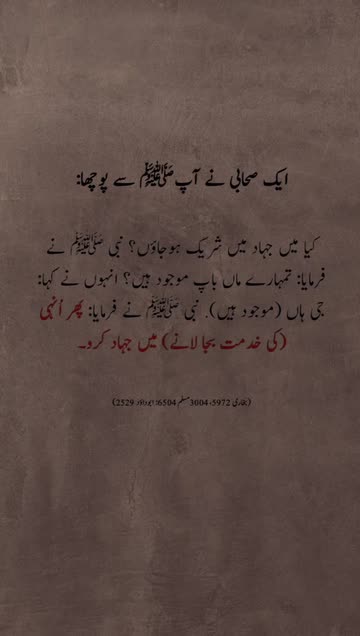 ایک صحابی نے آپ ﷺ سے پوچھا:
کیا میں جہاد میں شریک ہو جاؤں؟ نبی ﷺ نے
فرمایا: تمہارے ماں باپ موجود ہیں؟ انہوں نے کہا:
جی ہاں (موجود ہیں). نبی ﷺ نے فرمایا: پھر اُنہی
(کی خدمت بجا لانے) میں جہاد کرو۔
(بخاری 5972، 3004 مسلم 6504؛ ابوداؤد 2529)